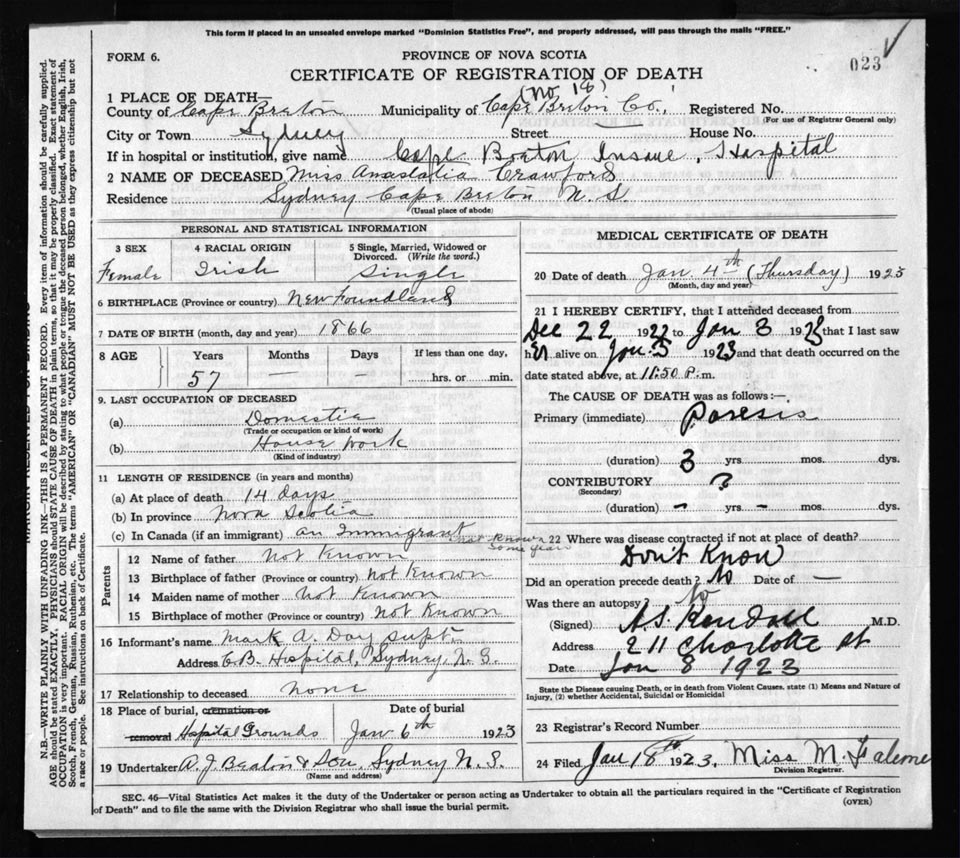 This form if placed in an unsealed envelope marked "Dominion Statistics Free", and properly addressed, will pass through the mails "FREE."
FORM 6.
PROVINCE OF NOVA SCOTIA
023
CERTIFICATE OF REGISTRATION OF DEATH
(No 18)
1 PLACE OF DEATH—
County of Cape Breton Municipality of Cape Breton Co. Registered No.
(For use of Registrar General only)
City or Town Sydney Street House No.
If in hospital or institution, give name Cape Breton Insane Hospital
2 NAME OF DECEASED Miss Anastatia Crawford
Residence Sydney Cape Breton N. S.
(Usual place of abode)
PERSONAL AND STATISTICAL INFORMATION
3 SEX 4 RACIAL ORIGIN 5 Single, Married, Widowed or Divorced. (Write the word.)
Female Irish Single
6 BIRTHPLACE (Province or country) New Foundland
7 DATE OF BIRTH (month, day and year) 1866
8 AGE Years Months Days If less than one day,
57 — — hrs. or min.
9. LAST OCCUPATION OF DECEASED
(a) Domestic
(Trade or occupation or kind of work)
(b) House work
(Kind of industry)
11 LENGTH OF RESIDENCE (in years and months)
(a) At place of death 14 days
(b) In province Nova Scotia
(c) In Canada (if an immigrant) an Immigrant not known some years
Parents
12 Name of father not Known
13 Birthplace of father (Province or country) not Known
14 Maiden name of mother not Known
15 Birthplace of mother (Province or country) not Known
16 Informant's name Mark A. Day supt.
Address C.B. Hospital, Sydney, N. S.
17 Relationship to deceased none
18 Place of burial, cremation or removal Hospital Grounds
Date of burial
Jan 6th 1923
19 Undertaker A. J. Beaton & Son, Sydney N. S.
(Name and address)
MEDICAL CERTIFICATE OF DEATH
20 Date of death Jan 4th (Thursday) 1923
(Month, day and year)
21 I HEREBY CERTIFY, that I attended deceased from
Dec 22 1922 to Jan 3 1923 that I last saw
her alive on Jan 3 1923 and that death occurred on the
date stated above, at 11:50 P.m.
The CAUSE OF DEATH was as follows:—
Primary (immediate) Paresis
(duration) 3 yrs. mos. dys.
CONTRIBUTORY ?
(Secondary)
(duration) – yrs. – mos. dys.
22 Where was disease contracted if not at place of death?
Don't Know
Did an operation precede death? No Date of —
Was there an autopsy? No
(Signed) A.S. Kendall M.D.
Address 211 Charlotte St
Date Jan 8 1923
State the Disease causing Death, or in death from Violent Causes, state (1) Means and Nature of Injury, (2) whether Accidental, Suicidal or Homicidal
23 Registrar's Record Number
24 Filed, Jan 18th 1923, Miss M.
Division Registrar.
SEC. 46—Vital Statistics Act makes it the duty of the Undertaker or person acting as Undertaker to obtain all the particulars required in the "Certificate of Registration
of Death" and to file the same with the Division Registrar who shall issue the burial permit.
(OVER)
N.B.—WRITE PLAINLY WITH UNFADING INK—THIS IS A PERMANENT RECORD. Every item of information should be carefully supplied.
AGE should be stated EXACTLY. PHYSICIANS should STATE CAUSE OF DEATH in plain terms, so that it may be properly classified. Exact statement of
OCCUPATION is very important. RACIAL ORIGIN will be described by stating to what people or tongue the deceased person belonged, whether English, Irish,
Scotch, French, German, Russian, Ruthenian, etc. The terms "AMERICAN" OR "CANADIAN" MUST NOT BE USED as they express citizenship but not
a race or people. See instructions on back of Certificate.